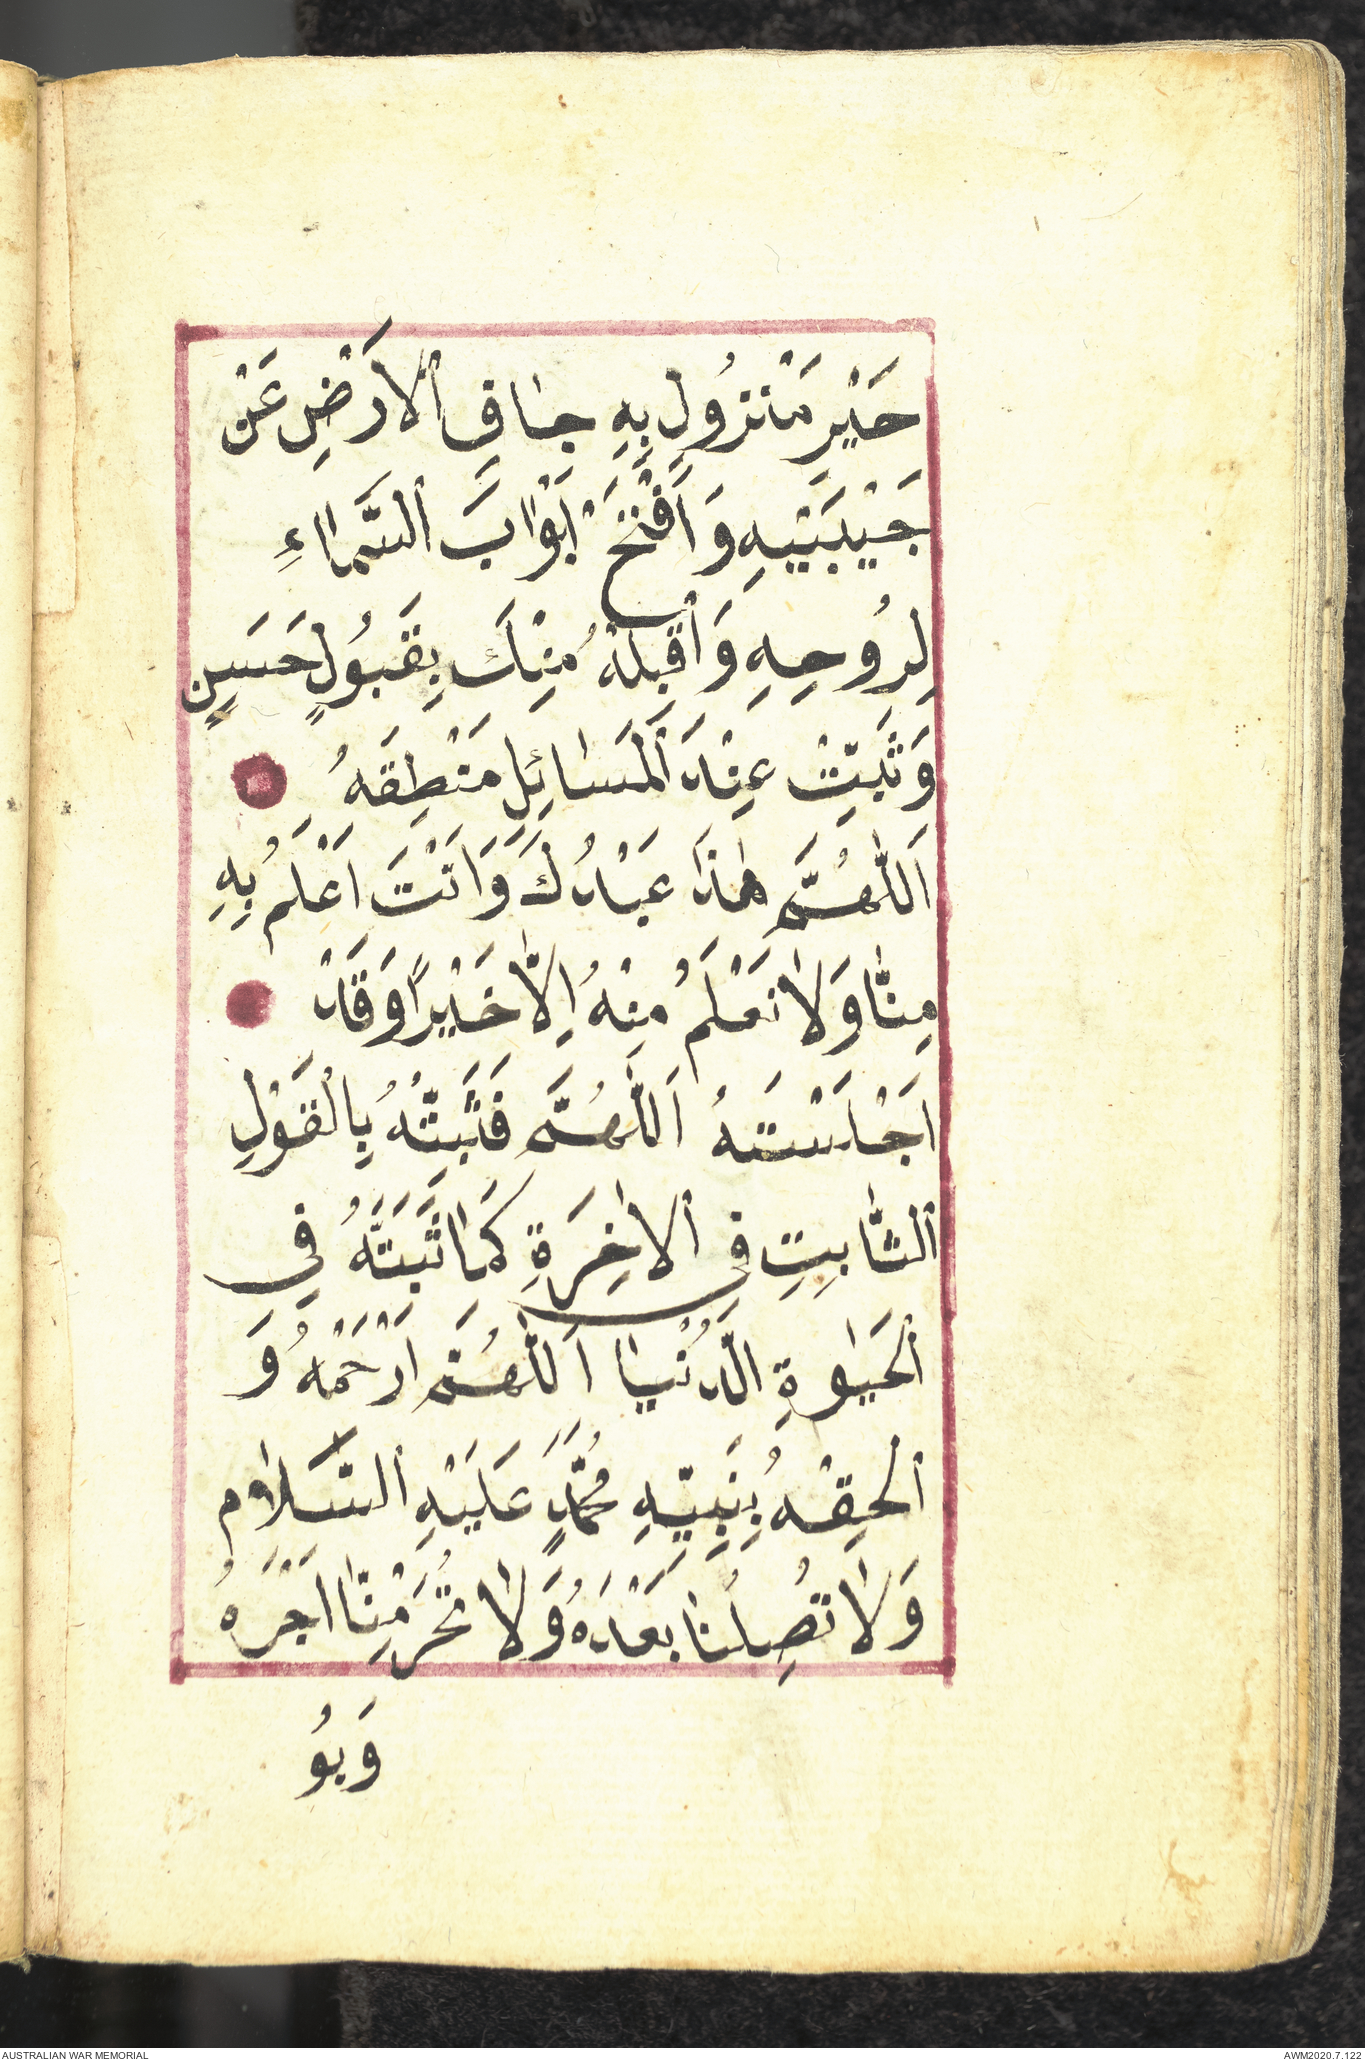 حَيْرِ مَنْنزُولِ بِهِ جٰافِ ٱلاَرْضِ عَنْ
جَيْبَتَيْهِ وَ اَفْتَحْ اَبْوٰابَ ٱلسَّمٰاءِ
لِرُوحِهِ وَٱقبِلْهُ مِنْكَ بِقَبُولٍ حَسَنٍ
وَثَبِّتْ عِنْدَ ٱلْمَسٰائِلِ مَنْطِقَهُ
اَللّٰهُمَّ هٰذَا عَبْدُكَ وَاَنْتَ اَعْلَمُ بِهِ
مِنّٰا وَلاٰ نَعْلَمُ مِنْهُ اِلاّٰ خَيْرًا وَقَدْ
اَجْلَسْتَهُ اَللّٰهُمَّ فَثَبِّتْهُ بِالْقَوْلِ
ٱلثّٰابِتِ فِي ٱلاٰخِرَةِ كَمٰا ثَبَّتَّهُ فِي
ٱلحَيٰوةِ الدُّنْيٰا اَللّٰهُمَّ ارْحَمْهُ وَ
ٱلحِقْهُ بِنَبِيِّهِ مُحَمَّدٍ عَلَيْهِ ٱلسَّلاٰم
وَلاٰ تُضِلَّنٰا بَعْدَهُ وَلاٰ تَحْرِمْنٰا اَجْرَهُ
وَبُو
AUSTRALIAN WAR MEMORIAL
AWM2020.7.122